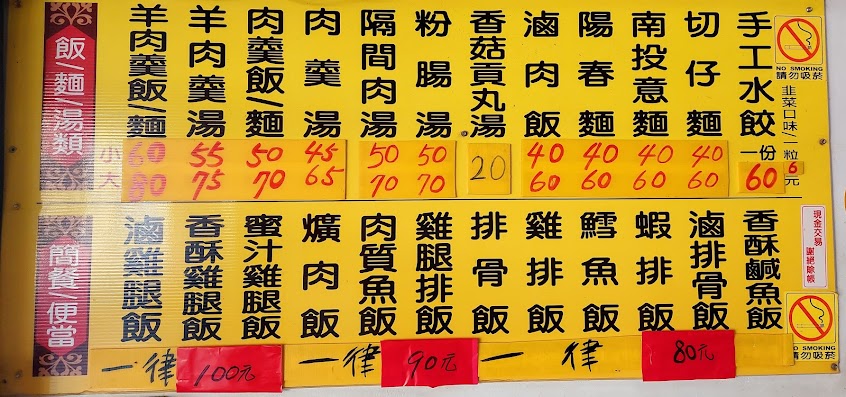 飯/麵/湯類
羊肉羹飯/麵
羊肉羹湯
肉羹飯/麵
肉羹湯
隔間肉湯
粉腸湯
香菇貢丸湯
滷肉飯
陽春麵
南投意麵
切仔麵
手工水餃
一份
60
韭菜口味/一粒6元
小 60 55 50 45 50 50 20 40 40 40 40
大 80 75 70 65 70 70 60 60 60 60
NO SMOKING
請勿吸菸
簡餐/便當
滷雞腿飯
香酥雞腿飯
蜜汁雞腿飯
爌肉飯
肉質魚飯
雞腿排飯
排骨飯
雞排飯
鱈魚飯
蝦排飯
滷排骨飯
香酥鹹魚飯
一律 100元
一律 90元
一律 80元
現金交易
謝絕賒帳
NO SMOKING
請勿吸菸